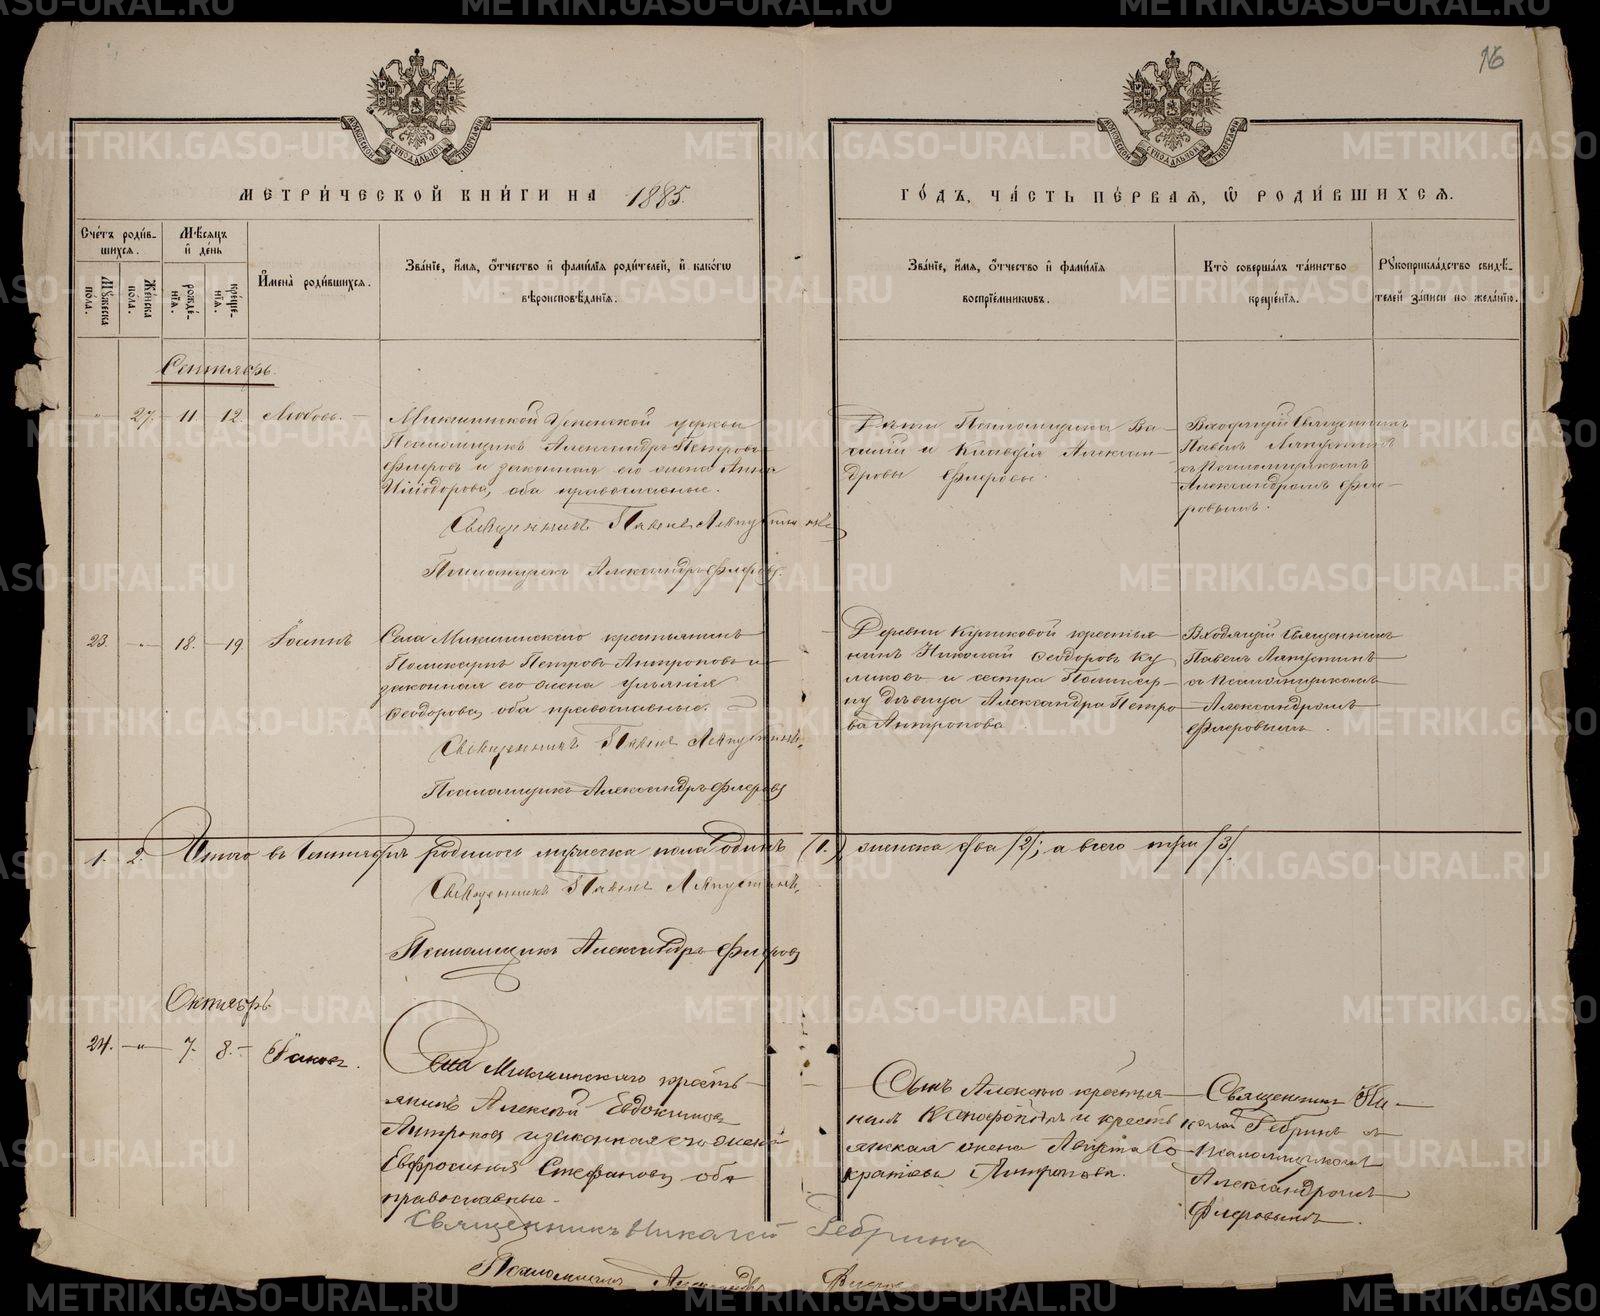 16
МЕТРИ́ЧЕСКОЙ КНИ́ГИ НА 1885.
ГО́ДЪ, ЧА́СТЬ ПЕ́РВАЯ, Ѽ РОДИ́ВШИХСЯ.
Сче́тъ роди́в-
шихся.
Мѣ́сяцъ
и҆ де́нь
Мꙋ́жеска
по́ла.
Же́нска
по́ла.
рожде́-
нїѧ.
креще́-
нїѧ.
И҆мена̀ роди́вшихся.
Зва́нїе, и҆́мѧ, ѻ҆́тчество и҆ фами́лїѧ роди́телей, и҆ како́гѡ
вѣроисповѣ́данїѧ.
Зва́нїе, и҆́мѧ, ѻ҆́тчество и҆ фами́лїѧ
воспрїе́мниковъ.
Кто̀ соверша́лъ та́инство
креще́нїѧ.
Рꙋкоприкла́дство свидѣ́-
телей за́писи по жела́нїю.
Сентябрь.
" 27. 11. 12. Любовь.
Микшинской Успенской церкви
Псаломщикъ Александръ Петровъ
Флеровъ и законная его жена Анна
оба православные.
Священникъ Павелъ Ляпустинъ
Псаломщикъ Александръ Флеровъ.
Дети Псаломщика Ва-
силій и Клавдія Алексан-
дровы Флеровы.
Входящій Священникъ
Павелъ Ляпустинъ
съ Псаломщикомъ
Александромъ Фле-
ровымъ.
23. " 18. 19. Іоаннъ
Села Микшинскаго крестьянинъ
Поликарпъ Петровъ Антроповъ и
законная его жена Ульянія
Ѳеодорова, оба православные.
Священникъ Павелъ Ляпустинъ.
Псаломщикъ Александръ Флеровъ
Деревни Куликовой крестья-
нинъ Николай Ѳеодоровъ Ку-
ликовъ и сестра Поликар-
пу девица Александра Петро-
ва Антропова
Входящій Священникъ
Павелъ Ляпустинъ
съ Псаломщикомъ
Александромъ
Флеровымъ.
1. 2. Итого въ Сентябре родилось мужеска пола одинъ (1.), женска два /2/; а всего три /3/.
Священникъ Павелъ Ляпустинъ.
Псаломщикъ Александръ Флеровъ
Октябрь
24. " 7. 8. Іаковъ.
Села Микшинскаго кресть-
янинъ Алексѣй Евдокимовъ
Антроповъ и законная его жена
Евфросинія Стефанова, оба
православные.
Священникъ Николай Гебринъ
Псаломщикъ Александръ Флеровъ
Сынъ Алексѣю крестья-
нинъ и кресть-
янская жена Со-
кратова Антропова.
Священникъ Ни-
колай Гебринъ съ
псаломщикомъ
Александромъ
Флеровымъ.
METRIKI.GASO-URAL.RU